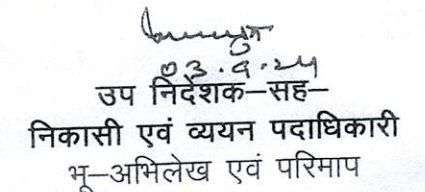 03.9.24
उप निदेशक–सह–
निकासी एवं व्ययन पदाधिकारी
भू–अभिलेख एवं परिमाप